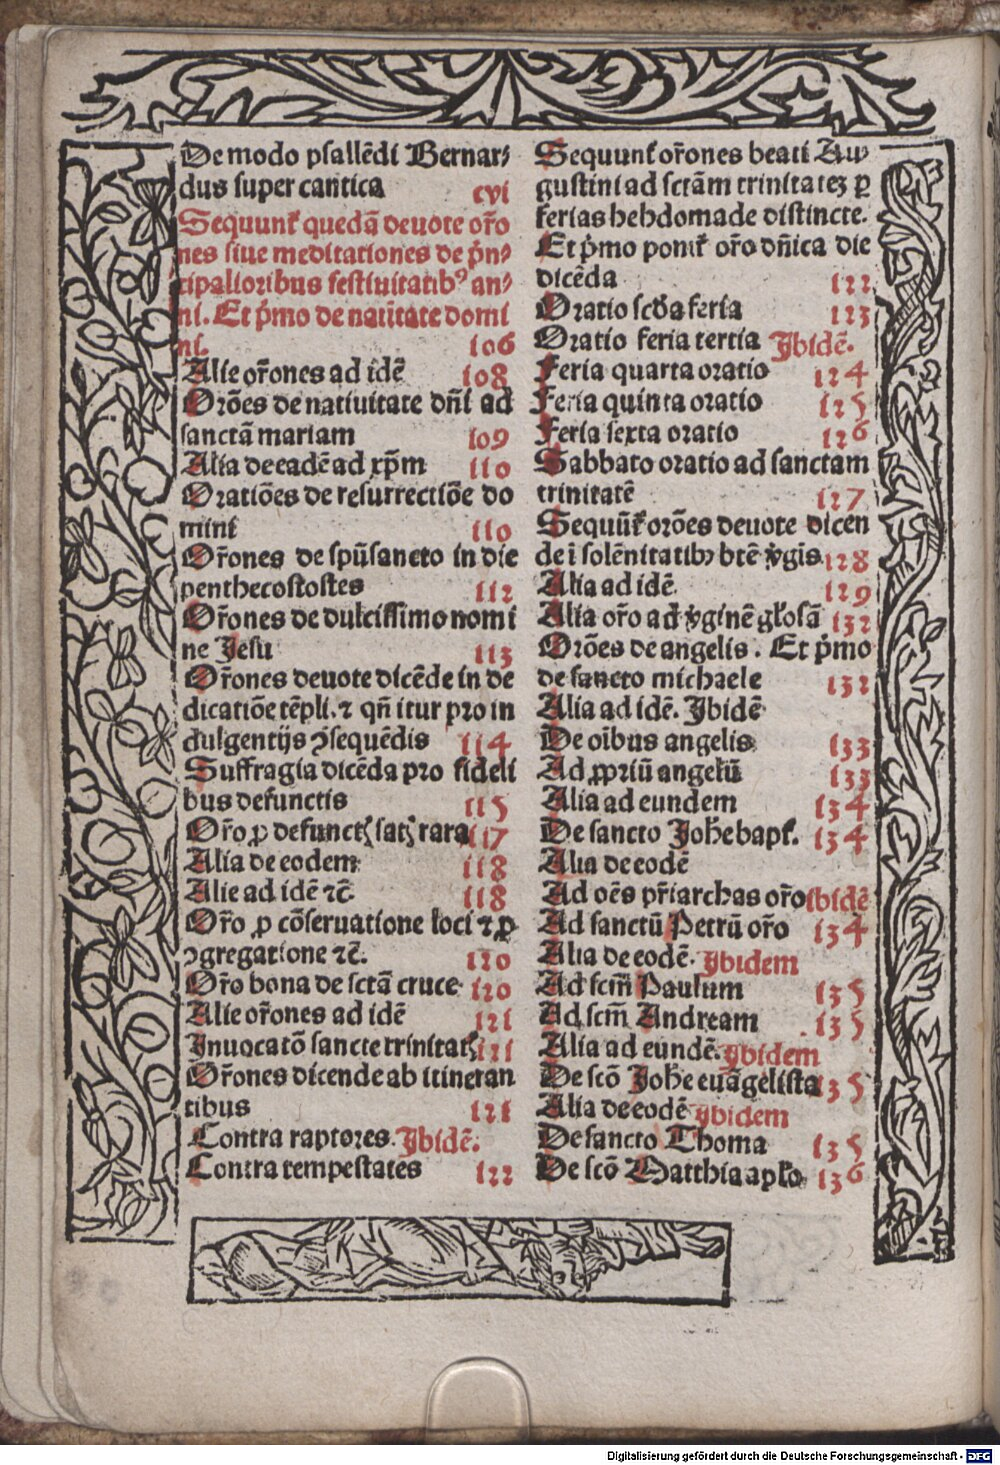 De modo psallẽdi Bernar⸗
dus super cantica cvi
Sequunt᷑ quedã deuote or̃o
nes siue meditationes de p̃n⸗
cipalioribus festiuitatibꝰ an⸗
ni. Et p̃mo de natiuitate domi
ni. 106
Alie or̃ones ad idẽ 108
Orões de natiuitate dñi ad
sanctã mariam 109
Alia de eadẽ ad xp̃m 110
Oratiões de resurrectiõe do
mini 110
Or̃ones de spũsancto in die
penthecostostes 112
Or̃ones de dulcissimo nomi
ne Jesu 113
Or̃ones deuote dicẽde in de
dicatiõe tẽpli. ⁊ qñ itur pro in
dulgentijs ꝯsequẽdis 114
Suffragia dicẽda pro fideli
bus defunctis 115
Or̃o ꝓ defunctꝭ satꝭ rara 117
Alia de eodem 118
Alie ad idẽ ⁊c̃. 118
Or̃o ꝓ cõseruatione loci ⁊ ꝓ
ꝯgregatione ⁊c̃. 120
Or̃o bona de sctã cruce 120
Alie or̃ones ad idẽ 121
Inuocatõ sancte trinitatꝭ 121
Or̃ones dicende ab itineran
tibus 121
Contra raptores. Ibidẽ.
Contra tempestates 122
Sequunt᷑ or̃ones beati Au⸗
gustini ad sctãm trinitatez ꝑ
ferias hebdomade distincte.
Et p̃mo ponit᷑ or̃o dñica die
dicẽda 122
Oratio scd̃a feria 123
Oratio feria tertia Ibidẽ.
Feria quarta oratio 124
Feria quinta oratio 125
Feria sexta oratio 126
Sabbato oratio ad sanctam
trinitatẽ 127
Sequũt᷑ orões deuote dicen
de ĩ solẽnitatibꝫ btẽ v̾gis. 128
Alia ad idẽ 129
Alia or̃o ad v̾ginẽ gl̃osã 132
Orões de angelis. Et p̃mo
de sancto michaele 132
Alia ad idẽ. Ibidẽ
De oĩbus angelis 133
Ad ꝓpriũ angelũ 133
Alia ad eundem 134
De sancto Joh̃e bapt᷑. 134
Alia de eodẽ
Ad oẽs pr̃iarchas or̃o ibidẽ
Ad sanctũ Petrũ or̃o 134
Alia de eodẽ. Ibidem
Ad scm̃ Paulum 135
Ad scm̃ Andream 135
Alia ad eundẽ. Ibidem
De scõ Joh̃e euãgelista 135
Alia de eodẽ Ibidem
De sancto Thoma 135
De scõ Matthia apl̃o 136
Digitalisierung gefördert durch die Deutsche Forschungsgemeinschaft - DFG